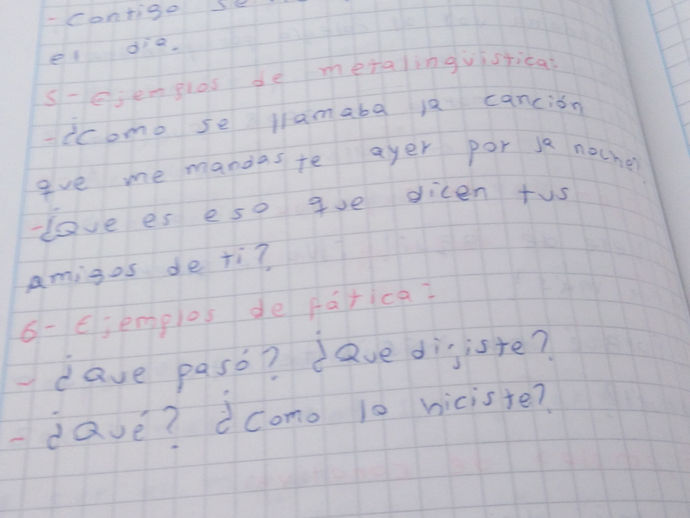 - Contigo se
el día.
5- Ejemplos de metalingüistica:
- ¿Como se llamaba la canción
que me mandaste ayer por la noche?
- ¿Que es eso que dicen tus
amigos de ti?
6- Ejemplos de fática:
- ¿Que pasó? ¿Que dijiste?
- ¿Qué? ¿Como lo hiciste?